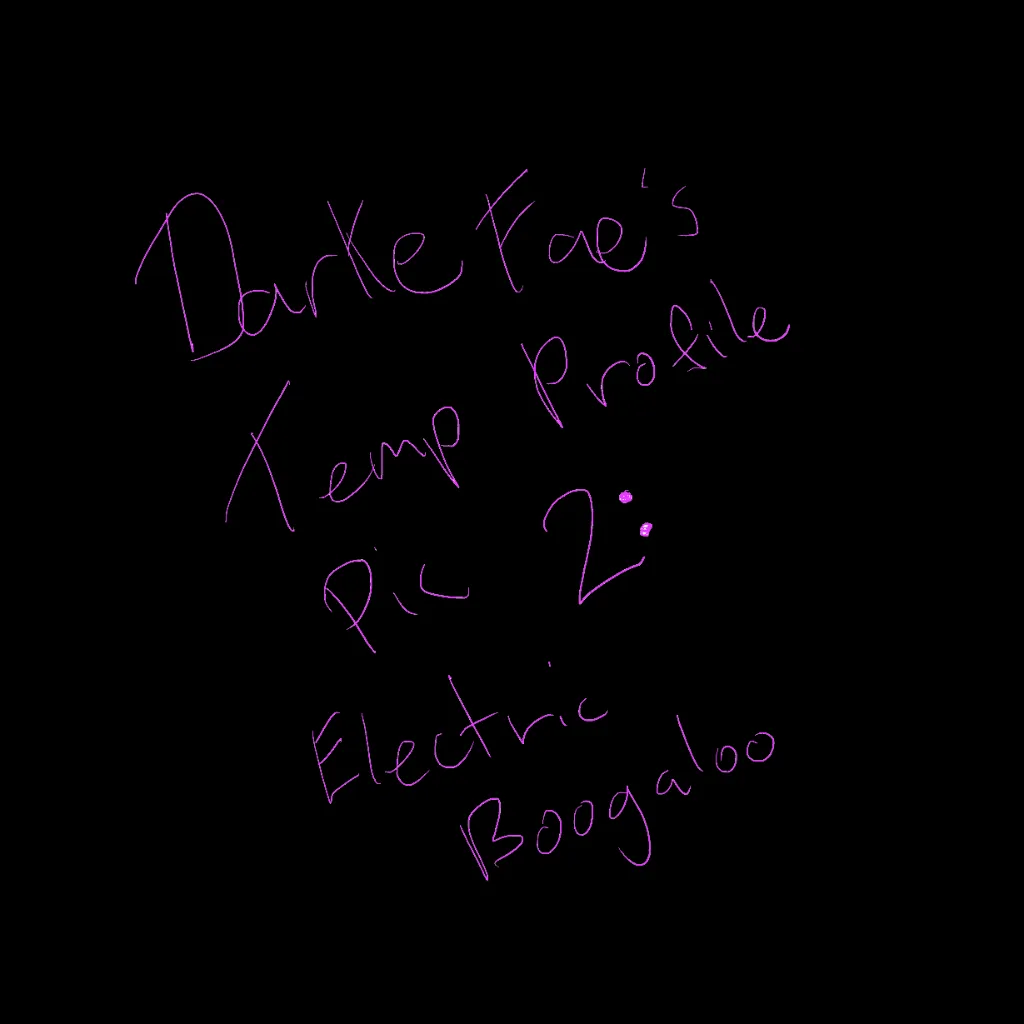 Darke Fae's
Temp Profile
Pic 2:
Electric
Boogaloo